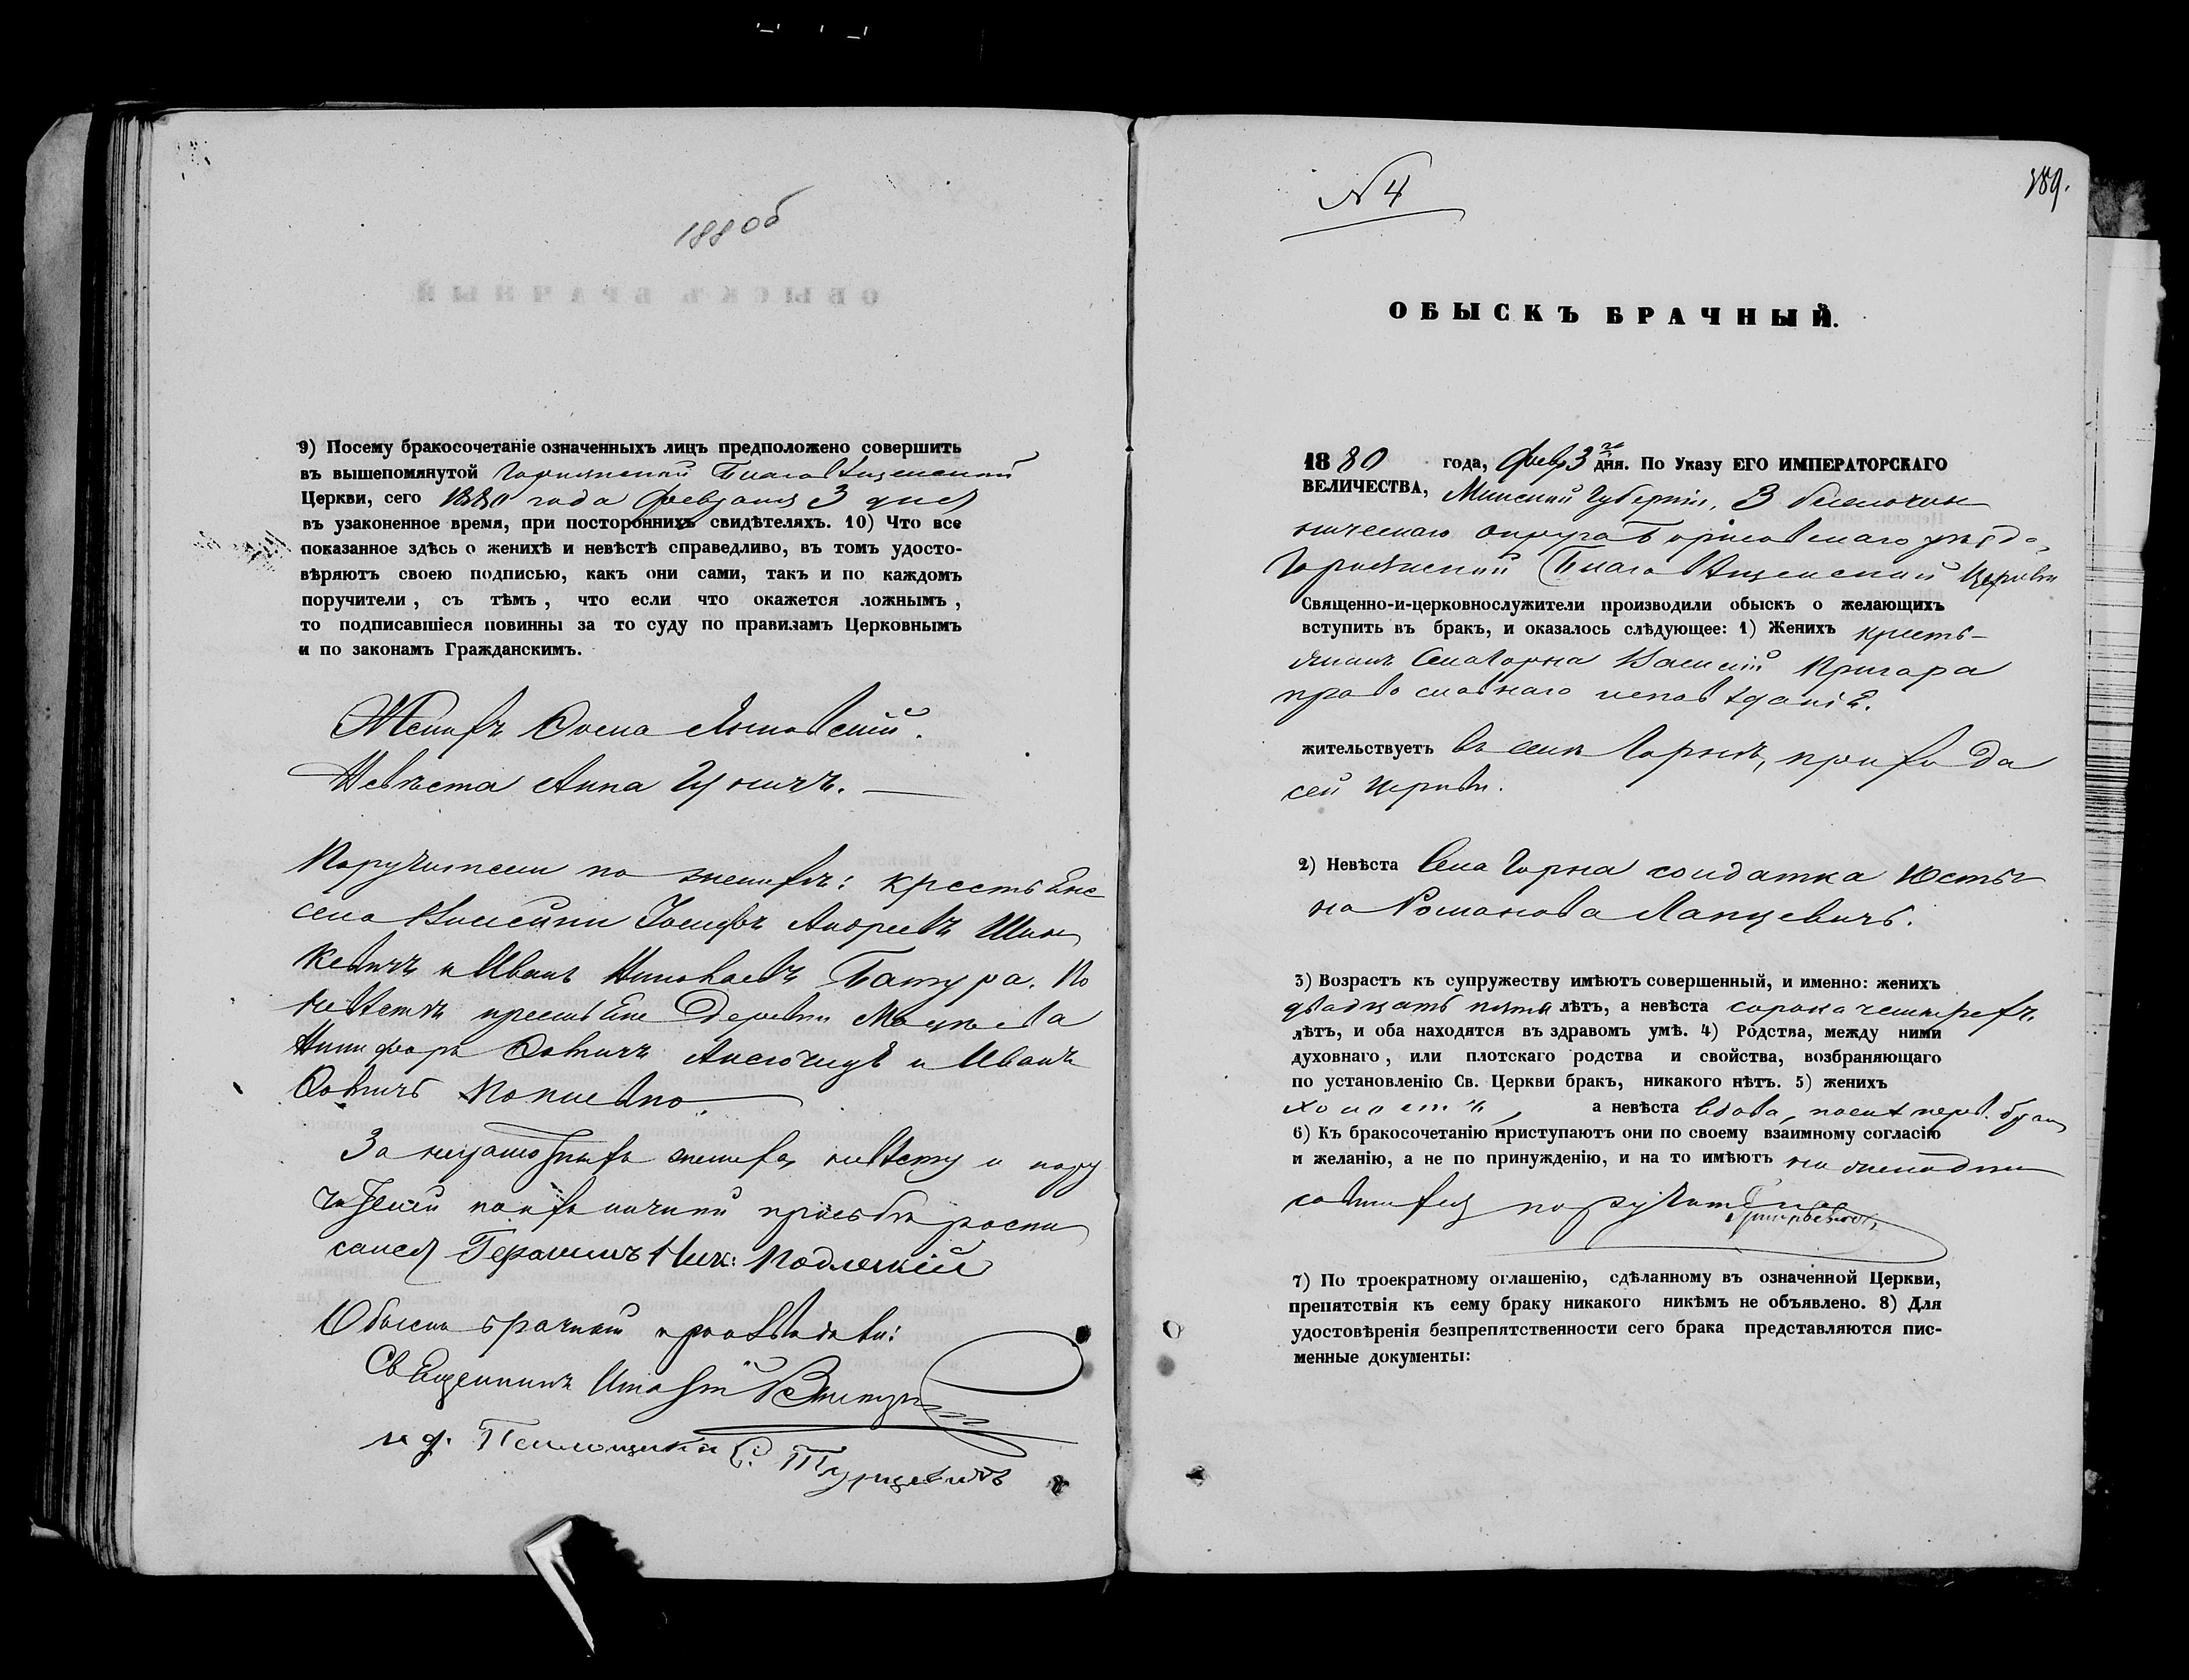 188 об
9) Посему бракосочетаніе означенныхъ лицъ предположено совершить
въ вышепомянутой Горнянской Благовѣщенской
Церкви, сего 1880 года февраля 3 дня
въ узаконенное время, при постороннихъ свидѣтеляхъ. 10) Что все
показанное здѣсь о женихѣ и невѣстѣ справедливо, въ томъ удосто-
вѣряютъ своею подписью, какъ они сами, такъ и по каждомъ
поручители, съ тѣмъ, что если что окажется ложнымъ,
то подписавшіеся повинны за то суду по правиламъ Церковнымъ
и по законамъ Гражданскимъ.
Женихъ Фома
Невѣста Анна
Поручители по женихѣ: крестьяне
села Іосифъ Андреевъ Шин
кевичъ и Иванъ Николаевъ Батура. По
невѣстѣ крестьяне деревни
Никифоръ и Иванъ
За неграмотныхъ жениха, невѣсту и пору
чителей по ихъ личной прозьбѣ роспи
сался Герасимъ Ник: Подлескій
Обыскъ брачный производили:
Священникъ Игнатій
и. д. Псаломщика С. Турцевичъ
189.
N 4
ОБЫСКЪ БРАЧНЫЙ.
1880 года, февр 3 го дня. По Указу ЕГО ИМПЕРАТОРСКАГО
ВЕЛИЧЕСТВА, Минской Губерніи, 3 благочин
ническаго округа Борисовскаго уѣзда,
Горнянской Благовѣщенской Церкви
Священно-и-церковнослужители производили обыскъ о желающихъ
вступить въ бракъ, и оказалось слѣдующее: 1) Женихъ кресть-
янинъ Села Горна Василій Пригара
православнаго исповѣданія.
жительствуетъ въ селѣ Горнѣ, прихода
сей церкви.
2) Невѣста Села Горна солдатка Юсты
на Романова Лапцевичъ.
3) Возрастъ къ супружеству имѣютъ совершенный, и именно: женихъ
двадцать пять лѣтъ, а невѣста сорока четырехъ
лѣтъ, и оба находятся въ здравомъ умѣ. 4) Родства, между ними
духовнаго, или плотскаго родства и свойства, возбраняющаго
по установленію Св. Церкви бракъ, никакого нѣтъ. 5) женихъ
холостъ, а невѣста вдова, послѣ перв. брака
6) Къ бракосочетанію приступаютъ они по своему взаимному согласію
и желанію, а не по принужденію, и на то имѣютъ
7) По троекратному оглашенію, сдѣланному въ означенной Церкви,
препятствія къ сему браку никакого никѣмъ не объявлено. 8) Для
удостовѣренія безпрепятственности сего брака представляются пис-
менные документы: